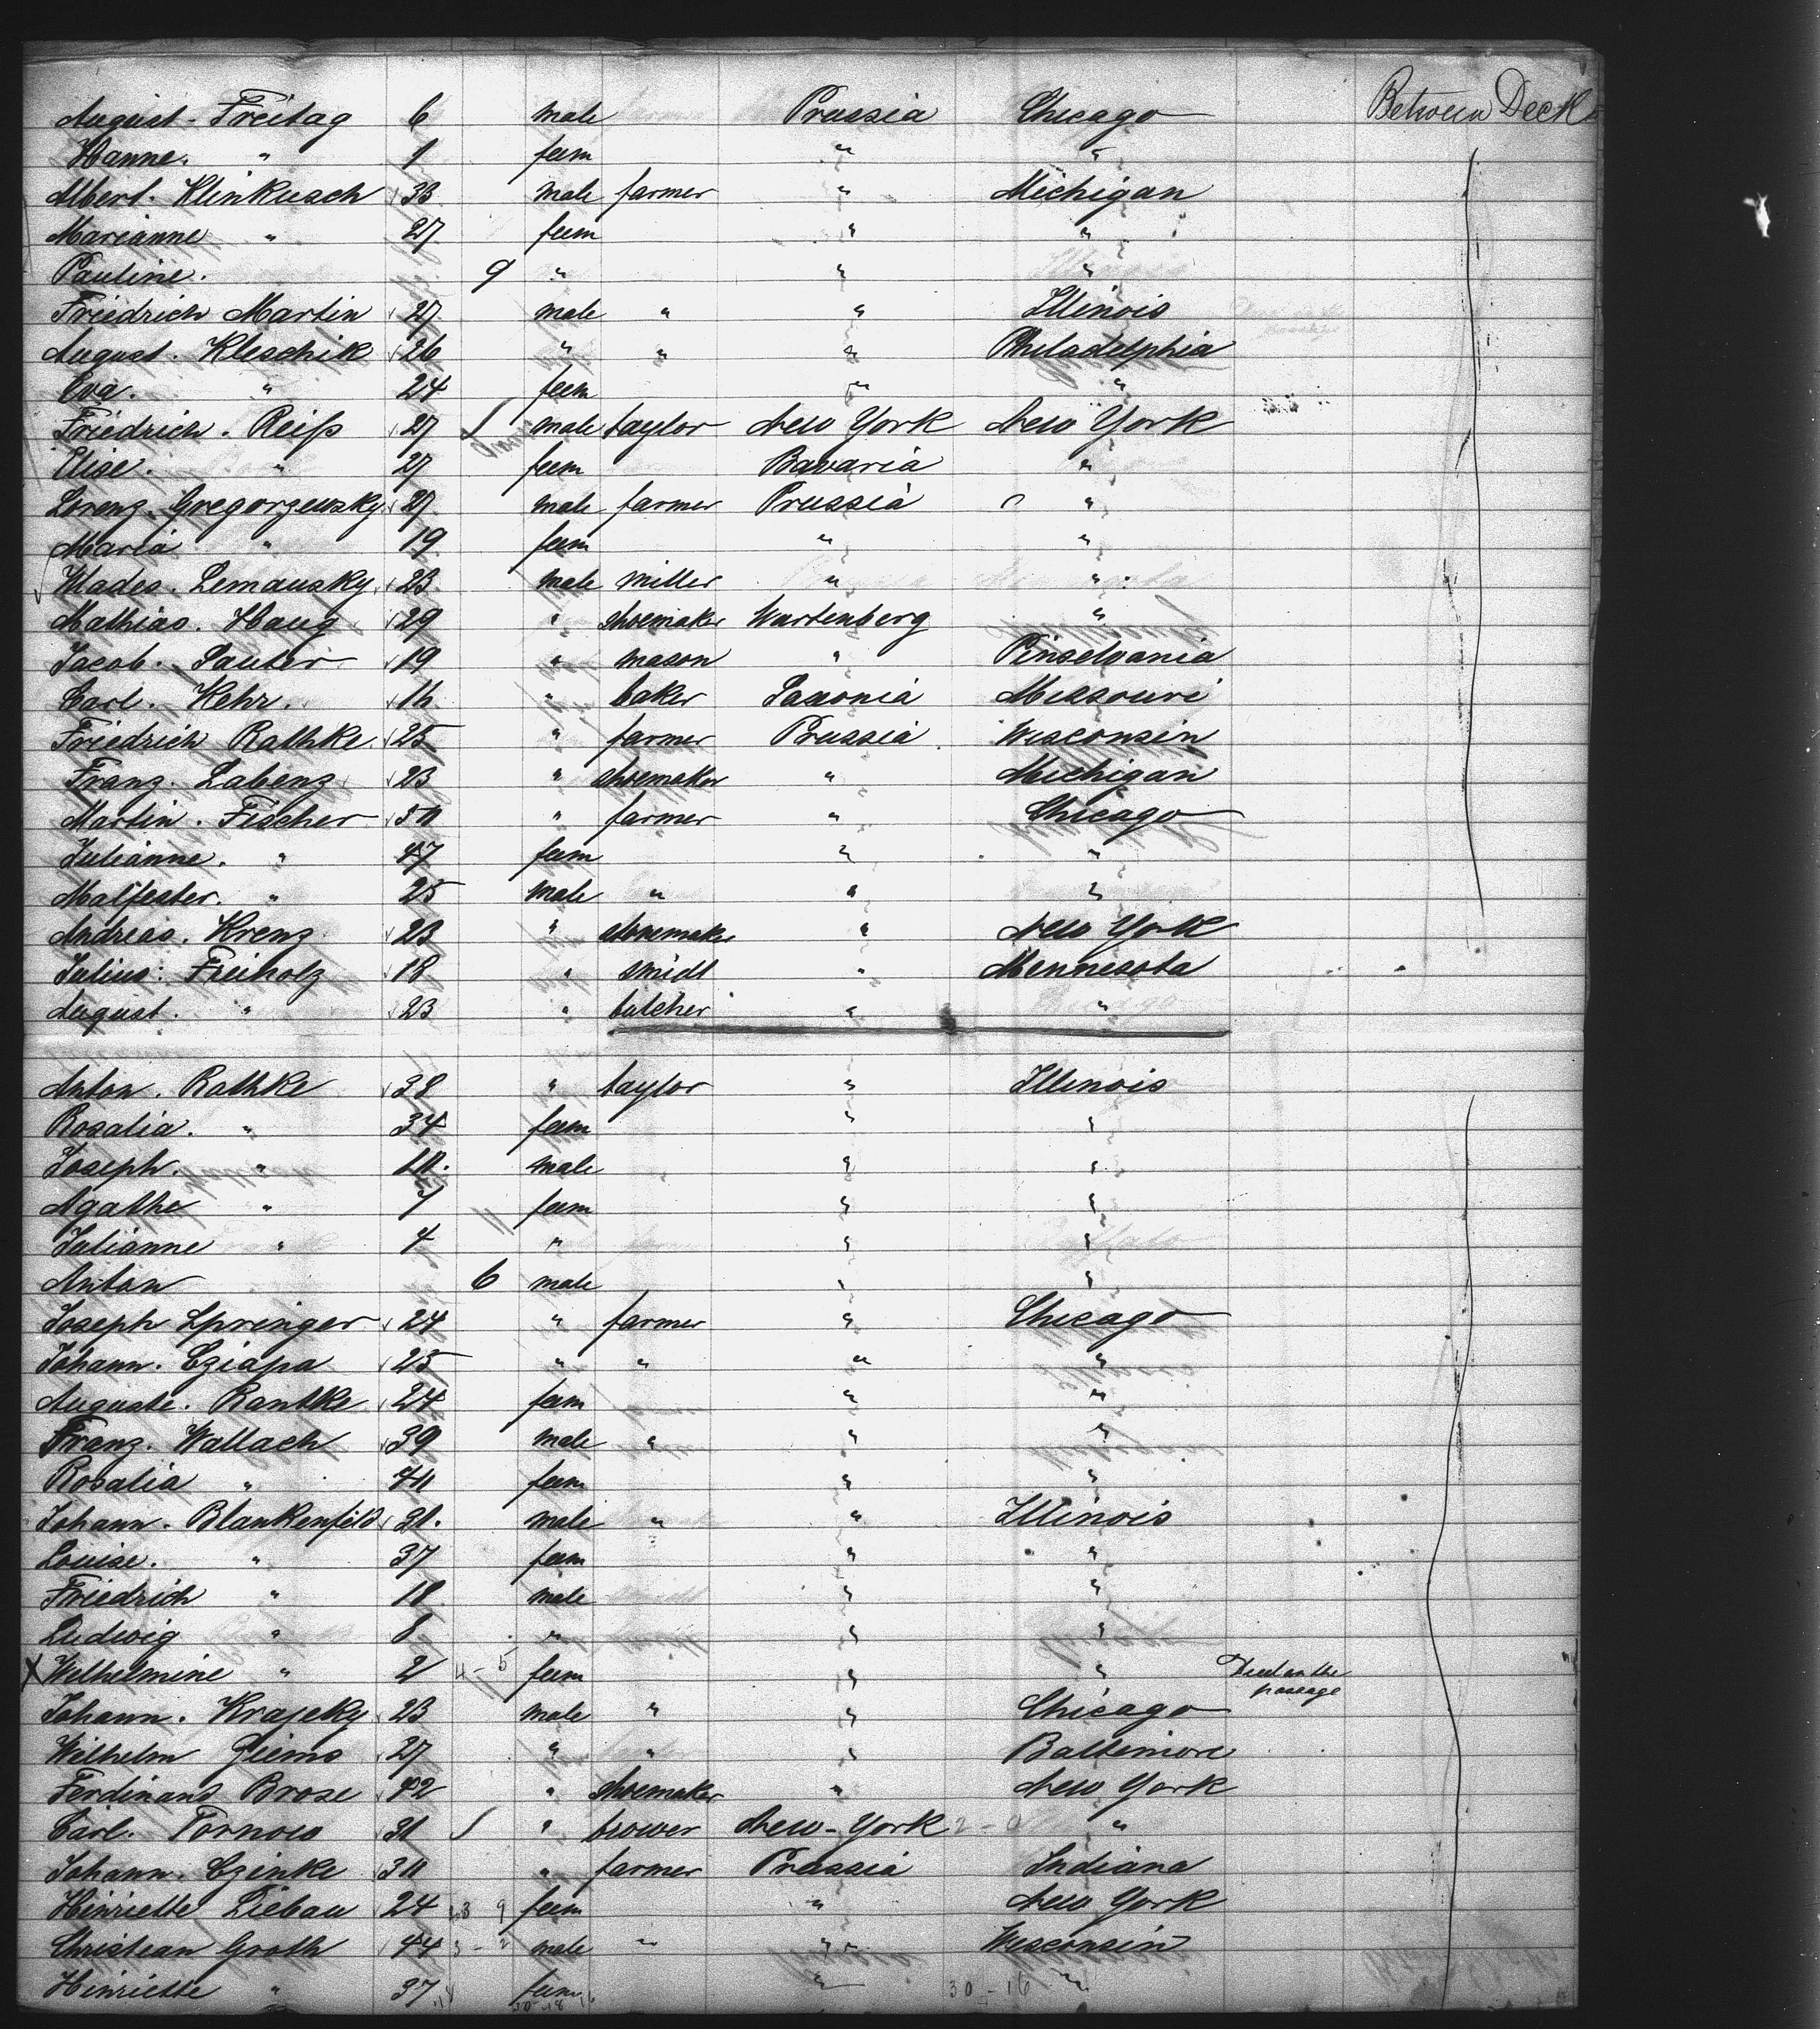 August Freitag 6 male Prussia Chicago Between Deck
Hanne. " 1 fem " "
Albert. Klinkusch 33 male farmer " Michigan
Marianne " 27 fem " "
Pauline. 9 " " "
Friedrich Martin 27 male " " Illinois
August. Kleschik 26 " " " Philadelphia
Eva. " 24 fem " "
Friedrich. Reiß 27 male taylor New York New York
Elise. " 27 fem Bavaria "
Lorenz. Gregorzewsky 27 male farmer Prussia "
Maria " 19 fem " "
Wlades. Lemausky 23 male miller " "
Mathias. Haug 29 " shoemaker Wurtenberg "
Jacob. Sauter 19 " mason " Pinselvania
Carl. Kehr. 16 " baker Saxonia Missouri
Friedrich Rathke. 25 " farmer Prussia Wisconsin
Franz. Labenz 23 " shoemaker " Michigan
Martin. Fischer 50 " farmer " Chicago
Julianne. " 47 fem " "
" 25 male " " "
Andreas. Krenz 23 " shoemaker " New York
Julius: Freiholz 18 " smidt " Mennesota
August. " 23 " butcher " "
Anton. Rathke 38 " taylor " Illinois
Rosalia. " 34 fem " "
Joseph. " 10. male " "
Agathe " 7 fem " "
Julianne " 4 " " "
Anton 6 male " "
Joseph Springer 24 " farmer " Chicago
Johann. Cziapa 25 " " " "
Auguste. Rantke 24 fem " "
Franz. Wallach 39 male " " "
Rosalia " 40 fem " "
Johann. Blankenfeld male " " Illinois
Louise. " 37 fem " "
Friedrich " 10 male " "
Ludwig " 8 " " "
X Wilhelmine " 2 4-5 fem " " Died on the passage
Johann. Krajeky 23 male " " Chicago
Wilhelm Ziems 27 " " " Baltimore
Ferdinand Brose 42 " shoemaker " New York
Carl. Tornow 31 " brower New-York "
Johann. Czinke 30 " farmer Prussia Indiana
Hinriette Liebau 24 fem " New York
Christian Groth 44 male " " Wisconsin
Hinriette " 37 fem " 30-16 "